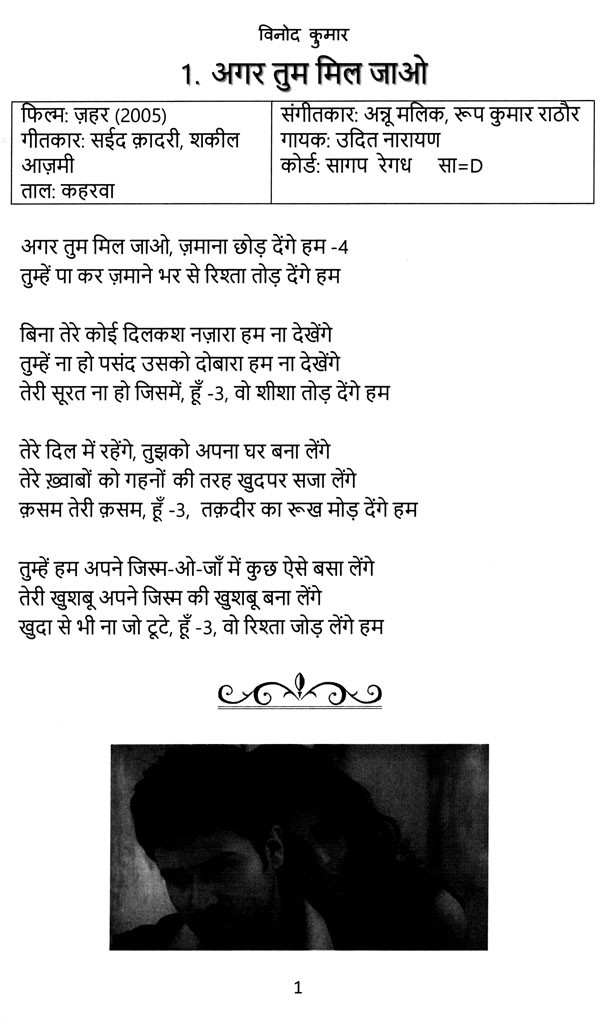 विनोद कुमार
1. अगर तुम मिल जाओ
फिल्म: ज़हर (2005)
गीतकार: सईद क़ादरी, शकील
आज़मी
ताल: कहरवा
संगीतकार: अन्नू मलिक, रूप कुमार राठौर
गायक: उदित नारायण
कोर्ड: सागप रेगध सा=D
अगर तुम मिल जाओ, ज़माना छोड़ देंगे हम -4
तुम्हें पा कर ज़माने भर से रिश्ता तोड़ देंगे हम
बिना तेरे कोई दिलकश नज़ारा हम ना देखेंगे
तुम्हें ना हो पसंद उसको दोबारा हम ना देखेंगे
तेरी सूरत ना हो जिसमें, हूँ -3, वो शीशा तोड़ देंगे हम
तेरे दिल में रहेंगे, तुझको अपना घर बना लेंगे
तेरे ख़्वाबों को गहनों की तरह खुदपर सजा लेंगे
क़सम तेरी क़सम, हूँ -3, तक़दीर का रूख मोड़ देंगे हम
तुम्हें हम अपने जिस्म-ओ-जाँ में कुछ ऐसे बसा लेंगे
तेरी खुशबू अपने जिस्म की खुशबू बना लेंगे
खुदा से भी ना जो टूटे, हूँ -3, वो रिश्ता जोड़ लेंगे हम
1